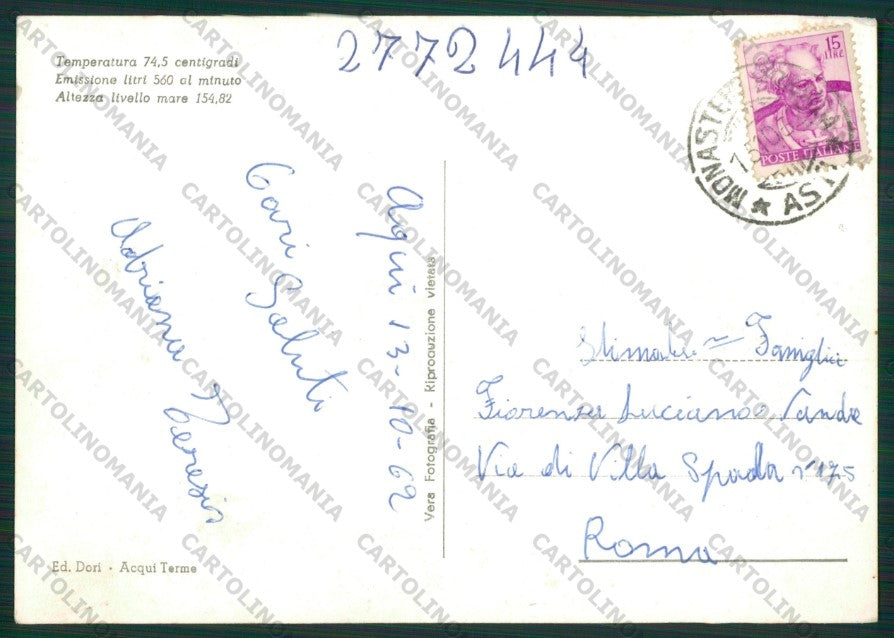 Temperatura 74,5 centigradi
Emissione litri 560 al minuto
Altezza livello mare 154,82
2772444
15
LIRE
POSTE ITALIANE
MONASTE
ASTI
Acqui 13-10-62
Cari Saluti
Adriana Teresis
Vera Fotografia - Riproduzione vietata
Stimate Famiglia
Fiorenza Luciano Sandre
Via di Villa Spada n° 175
Roma
Ed. Dori - Acqui Terme
CARTOLINOMANIA